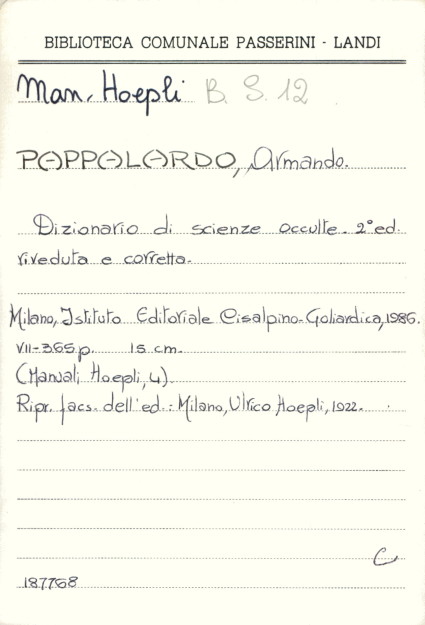 BIBLIOTECA COMUNALE PASSERINI - LANDI
Man. Hoepli B. S. 12
PAPPALARDO, Armando.
Dizionario di scienze occulte. 2ª ed.
riveduta e corretta.
Milano, Istituto Editoriale Cisalpino-Goliardica, 1986.
VII-365 p. 15 cm.
(Manuali Hoepli, 4).
Ripr. facs. dell'ed.: Milano, Ulrico Hoepli, 1922.
C
187768